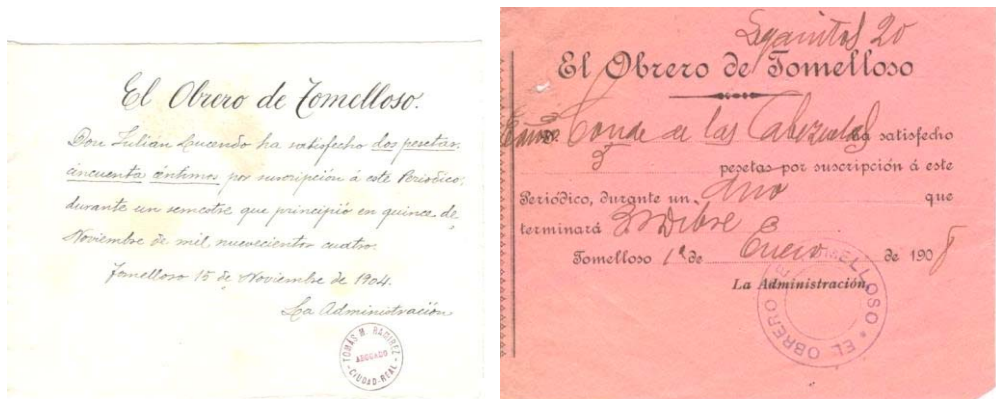 El Obrero de Tomelloso.
Don Julián Lucendo ha satisfecho dos pesetas,
cincuenta céntimos por suscripción á este Periódico,
durante un semestre que principió en quince de
Noviembre de mil nuevecientos cuatro.
Tomelloso 15 de Noviembre de 1904.
La Administración
TOMÁS M. RAMIREZ
ABOGADO
CIUDAD-REAL
20
El Obrero de Tomelloso
Conde de las Cabezuelas ha satisfecho
3 pesetas por suscripción á este
Periódico, durante un Año que
terminará
Tomelloso 1º de Enero de 1908
La Administración
EL OBRERO DE TOMELLOSO